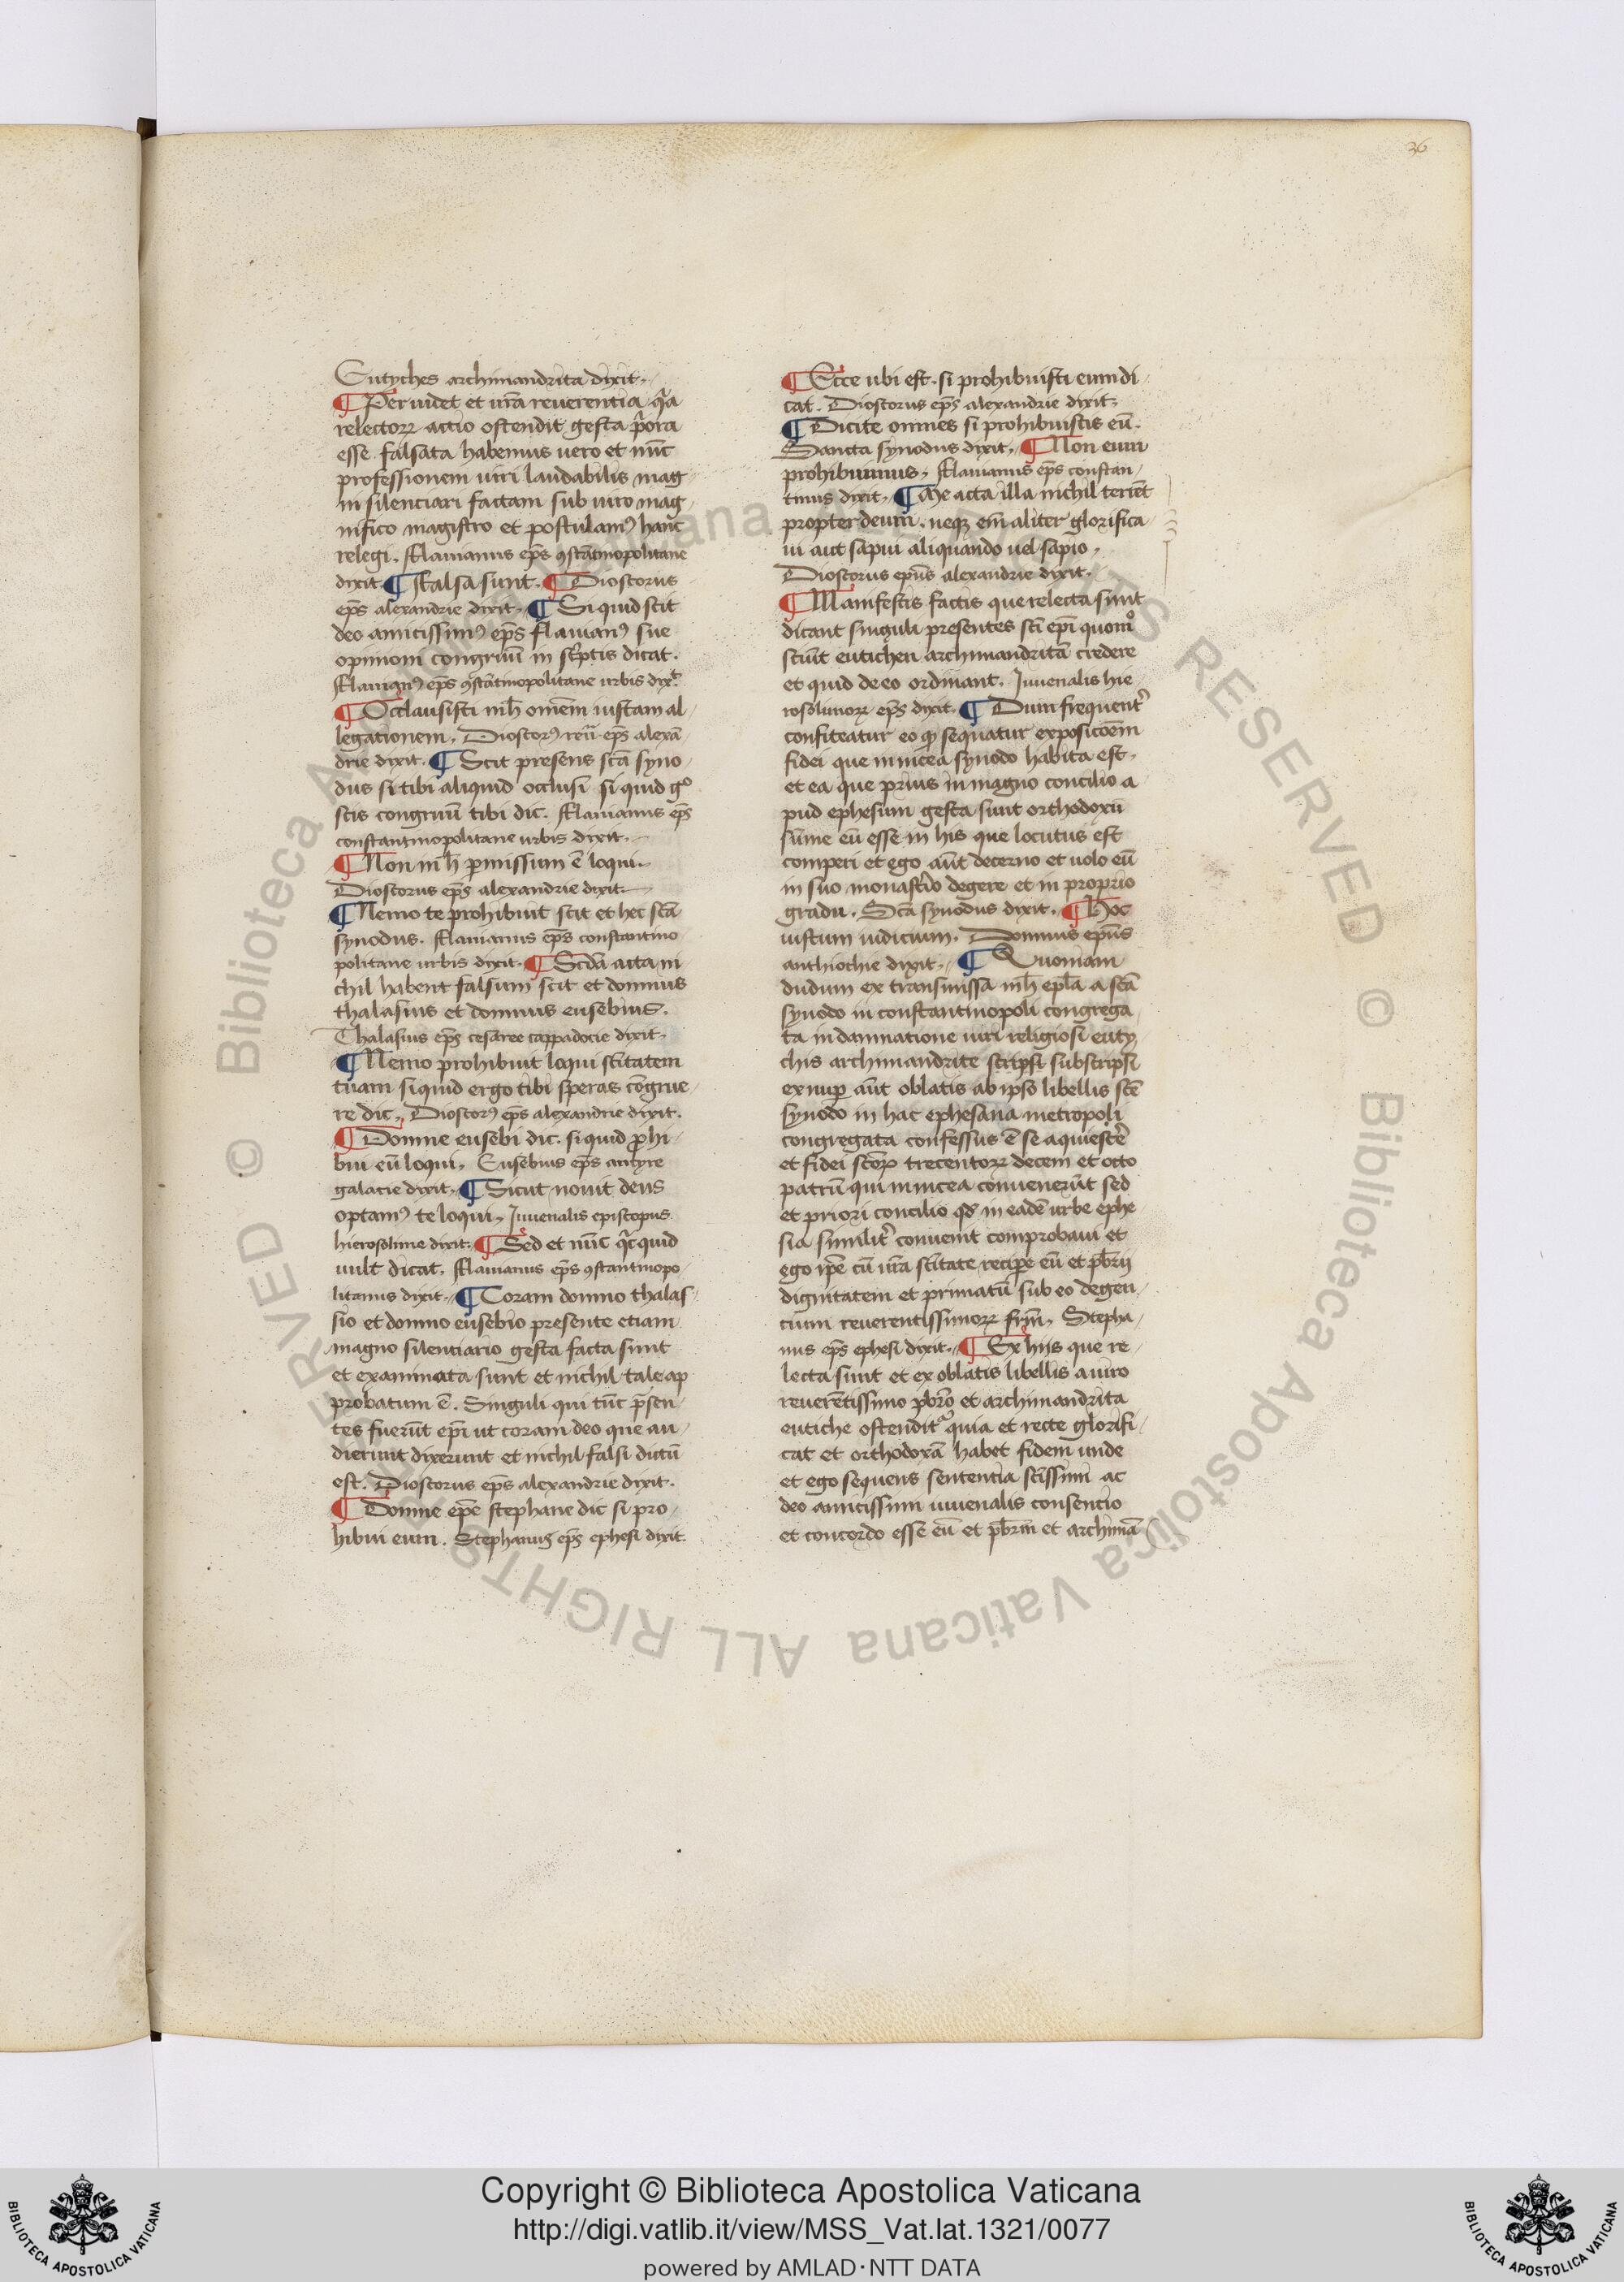 36
Eutyches archimandrita dixit.
¶ Peruidet et ur̄a reuerentia qr̄a
relectorꝝ actio ostendit gesta pͥora
esse falsata habemus uero et nūc
professionem uiri laudabilis mag
ni silenciari factam sub uiro mag
nifico magistro et postulamꝰ hanc
relegi. Flauianus ep̄s ꝯstātinopolitane
dixit. ¶ Falsa sunt. ¶ Dioscorus
ep̄s alexandrie dixit. ¶ Si quid scit
deo amicissimꝰ ep̄s flauianꝰ sue
opinioni congruū in sc̄ptis dicat.
Flauianꝰ ep̄s ꝯstātinopolitane urbis dix̄t
¶ Occlausisti mih̄ omēm iustam al
legationem. Dioscorꝰ ep̄s alexā
drie dixit. ¶ Scit presens sc̄a syno
dus si tibi aliquid occlusi si quid gͦ
scis congruū tibi dic. Flauianus ep̄s
constantinopolitane urbis dixit.
¶ Non mih̄ ꝑmissum ē loqui.
Dioscorus ep̄s alexandrie dixit
¶ Nemo te prohibuit scit et hec sc̄a
synodus. Flauianus ep̄s constantino
politane urbis dixit. ¶ Scd̄a acta ni
chil habent falsum scit et domnus
thalasius et domnus eusebius.
Thalasius ep̄s cesaree cappadocie dixit.
¶ Nemo prohibuit loqui sc̄itatem
tuam si quid ergo tibi speras cōgrue
re dic. Dioscorꝰ ep̄s alexandrie dixit.
¶ Domne eusebi dic. si quid ꝓhi
bui eū loqui. Eusebius ep̄s ancyre
galacie dixit. ¶ Sicut nouit deus
optamꝰ te loqui. Iuuenalis episcopus
hierosolime dixit. ¶ Sed et nūc qͥcquid
uult dicat. Flauianus ep̄s ꝯstantinopo
litanus dixit. ¶ Coram domno thalas
sio et domno eusebio presente etiam
magno silentiario gesta facta sunt
et examinata sunt et nichil tale ap
probatum ē. Singuli qui tūc p̄sen
tes fuerūt ep̄i ut coram deo que au
dierunt dixerunt et nichil falsi dictū
est. Dioscorus ep̄s alexandrie dixit.
¶ Domne ep̄e stephane dic si pro
hibui eum. Stephanus ep̄s ephesi dixit.
¶ Ecce ubi est. si prohibuisti eum di
cat. Dioscorus ep̄s alexandrie dixit.
¶ Dicite omnes si prohibuistis eū.
Sancta synodus dixit. ¶ Non eum
prohibuimus. Flauianus ep̄s constan
tinus dixit. ¶ Me acta illa nichil terēt
propter deum. neqꝫ em̄ aliter glorifica
ui aut sapui aliquando uel sapio.
Dioscorus epūs alexandrie dixit.
¶ Manifestis factis que relecta sunt
dicant singuli presentes sc̄i ep̄i quomͦ
sciūt eutichen archimandritā credere
et quid de eo ordinant. Iuuenalis hie
rosolimorꝝ ep̄s dixit. ¶ Dum frequent͛
confiteatur eo ꝙ sequatur expositōem
fidei que in nicea synodo habita est.
et ea que prius in magno concilio a
pud ephesum gesta sunt orthodoxū
sūme eū esse in his que locutus est
comperi et ego aūt decerno et uolo eū
in suo monasterio degere et in proprio
gradu. Sc̄a synodus dixit. ¶ Hoc
iustum iudicium. Domnus epūs
anthiochie dixit. ¶ Quoniam
dudum ex transmissa mh̄ epl̄a a sc̄a
synodo in constantinopoli congrega
ta in damnatione uiri religiosi euty
chis archimandrite scripsi subscripsi
ex nuꝑ aūt oblatis ab ipso libellis sc̄e
synodo in hac ephesana metropoli
congregata confessus ē se aquiescere
et fidei sc̄orꝝ trecentorꝝ decem et octo
patrū qui in nicea conuenerūt sed
et priori concilio qd̄ in eadē urbe ephe
sia similit͛ conuenit comprobaui et
ego ip̄e cū ur̄a sc̄itate recipe eū et pb̄rii
dignitatem et primatū sub eo degen
cium reuerentissimorꝝ fr̄m. Stepha
nus ep̄s ephesi dixit. ¶ Ex hiis que re
lecta sunt et ex oblatis libellis a uiro
reuerētissimo pb̄ro et archimandrita
eutiche ostendit᷑ quia et recte glorifi
cat et orthodoxā habet fidem unde
et ego sequens sententia sc̄issimi ac
deo amicissimi iuuenalis consencio
et concordo esse eū et pb̄rm et archimā
Copyright © Biblioteca Apostolica Vaticana
http://digi.vatlib.it/view/MSS_Vat.lat.1321/0077
powered by AMLAD·NTT DATA
BIBLIOTECA APOSTOLICA VATICANA
BIBLIOTECA APOSTOLICA VATICANA
© Biblioteca Apostolica Vaticana ALL RIGHTS RESERVED
© Biblioteca Apostolica Vaticana ALL RIGHTS RESERVED